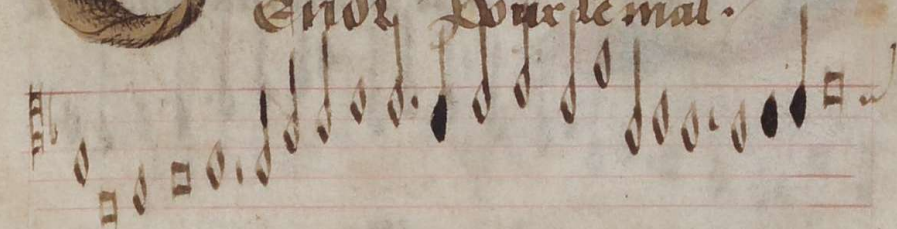 Tenor Pour le mal.